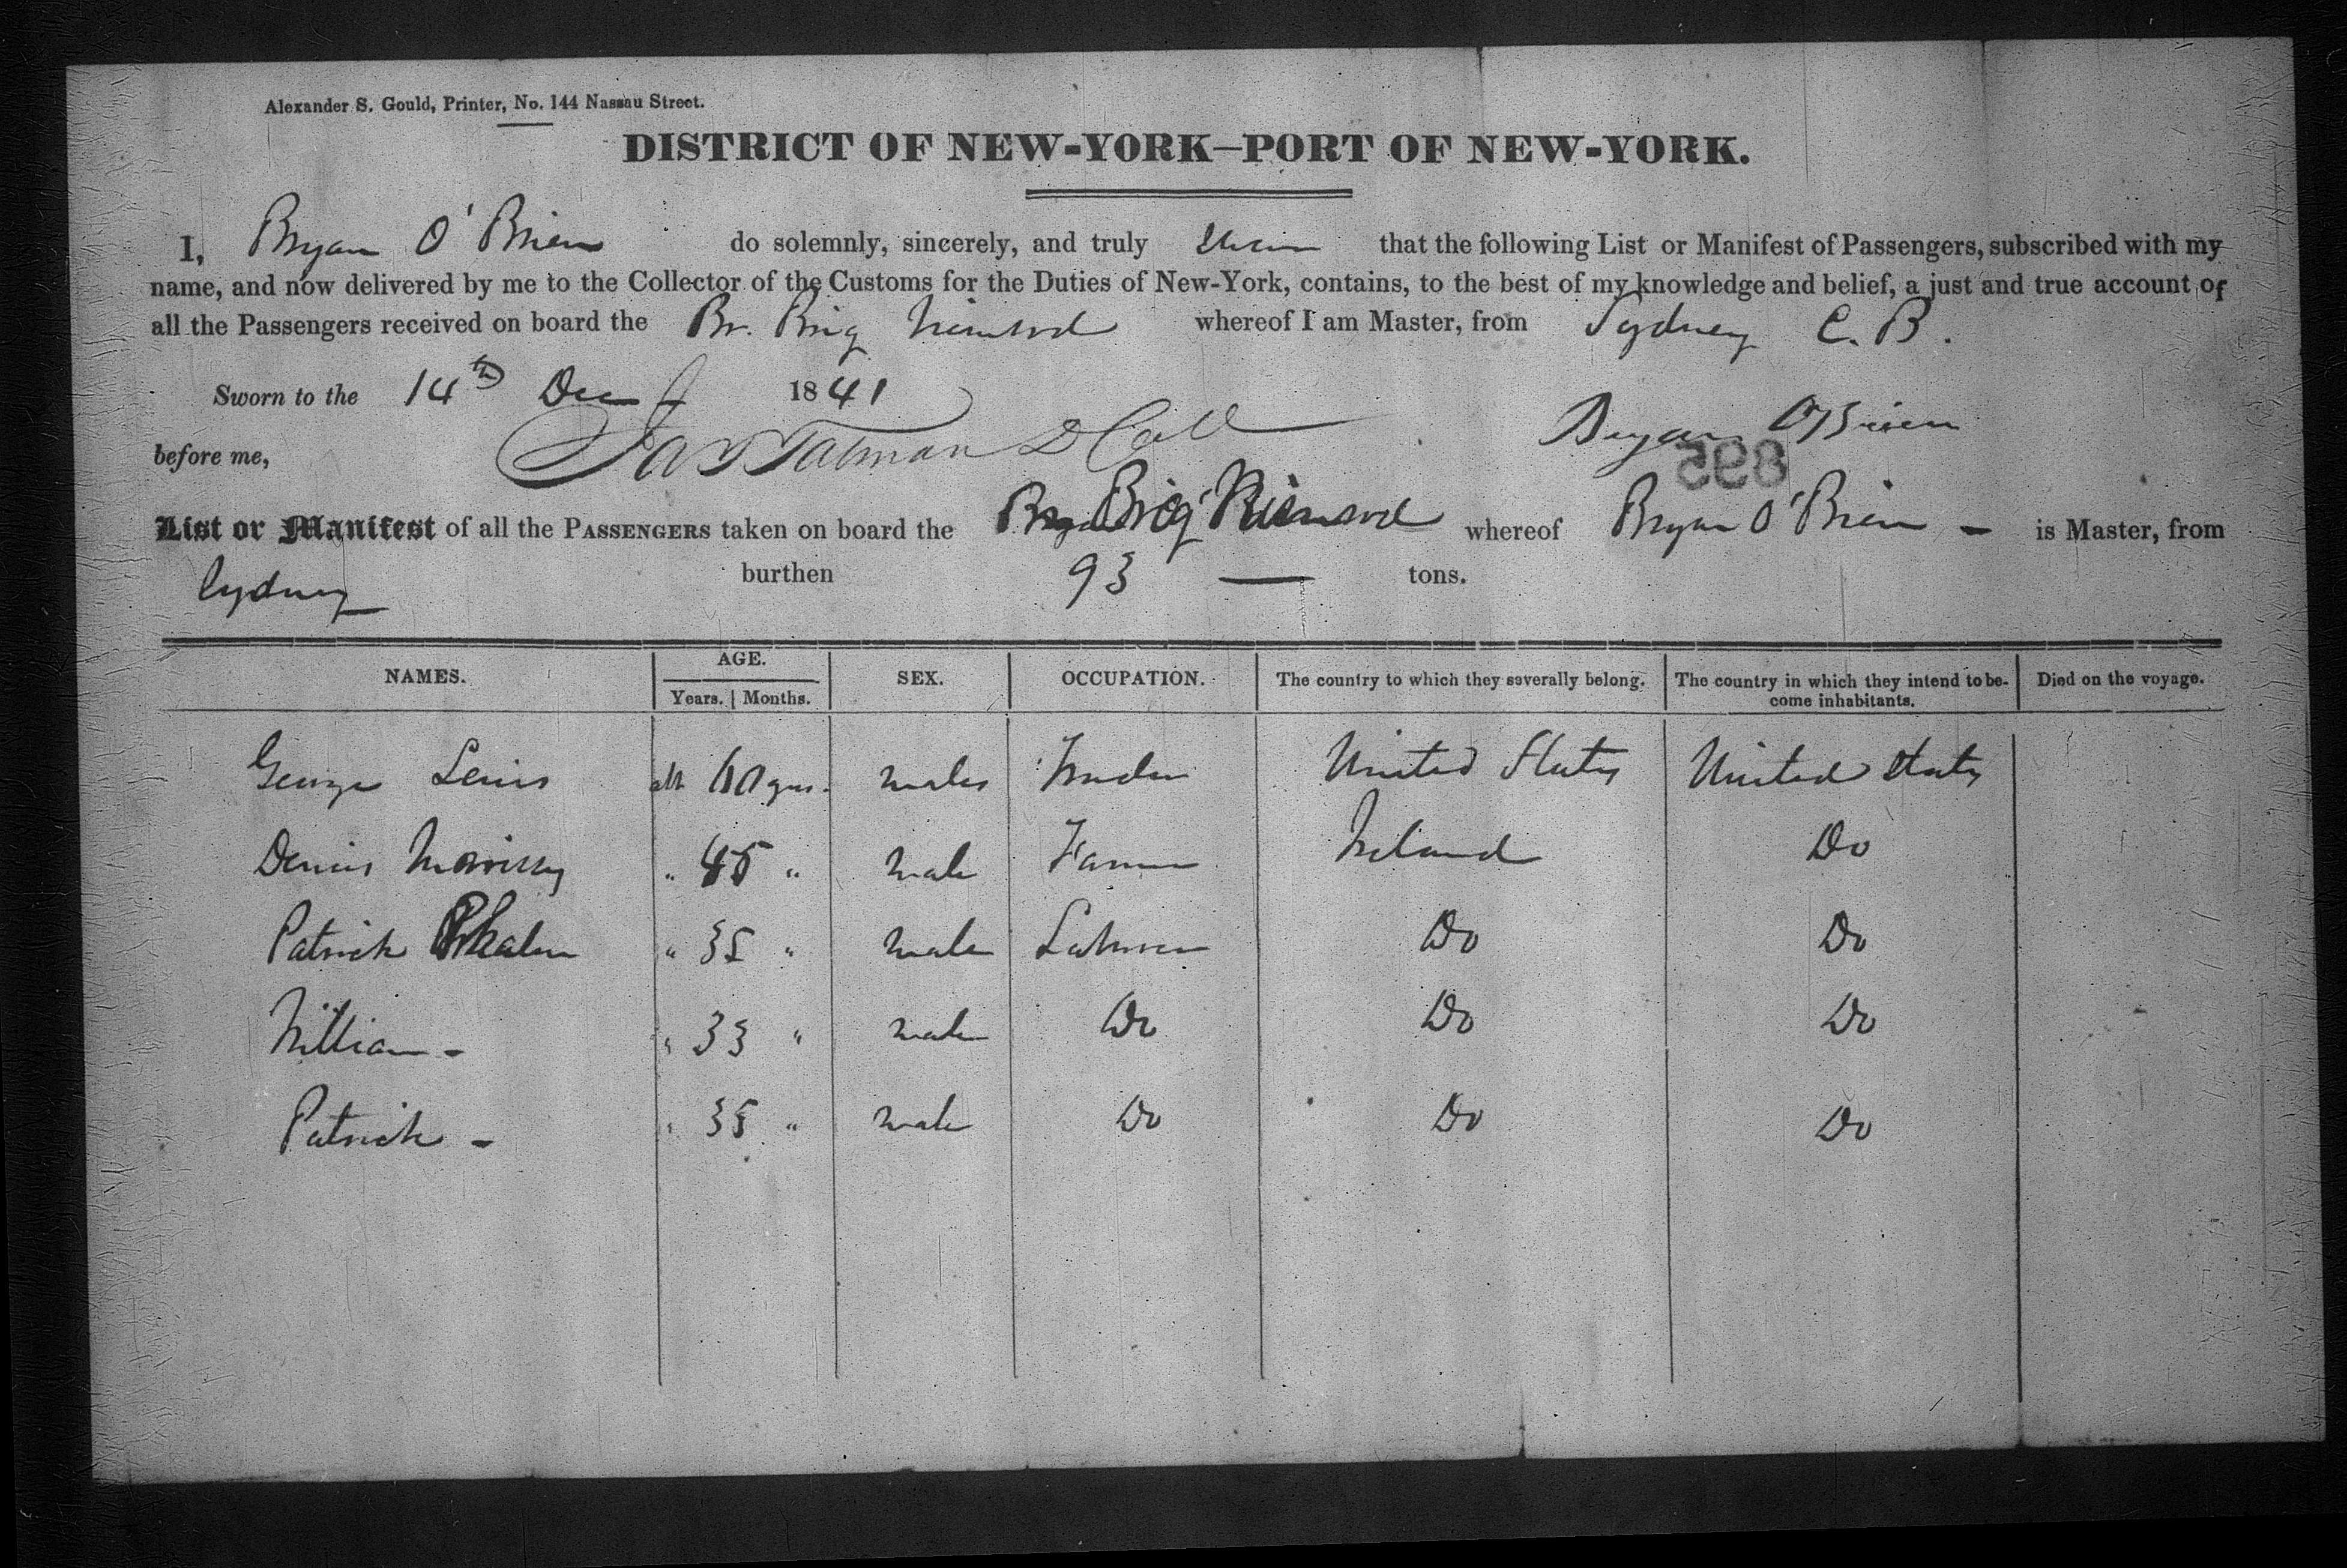 Alexander S. Gould, Printer, No. 144 Nassau Street.
DISTRICT OF NEW-YORK—PORT OF NEW-YORK.
I, Bryan O'Brien do solemnly, sincerely, and truly swear that the following List or Manifest of Passengers, subscribed with my
name, and now delivered by me to the Collector of the Customs for the Duties of New-York, contains, to the best of my knowledge and belief, a just and true account of
all the Passengers received on board the Br. Brig whereof I am Master, from Sydney C. B.
Sworn to the 14th Dec 1841
before me, Jas Talman D Coll Bryan O'Brien
895
List or Manifest of all the PASSENGERS taken on board the Brig whereof Bryan O'Brien — is Master, from
Sydney burthen 93 — tons.
NAMES. AGE. SEX. OCCUPATION. The country to which they severally belong. The country in which they intend to be-
Years. | Months. come inhabitants. Died on the voyage.
George Lewis abt 60 yrs. males Trader United States United States
Denis Morrissy " 45 " male Farmer Ireland Do
Patrick Phalen " 35 " male Labourer Do Do
William - " 33 " male Do Do Do
Patrick - " 35 " male Do Do Do